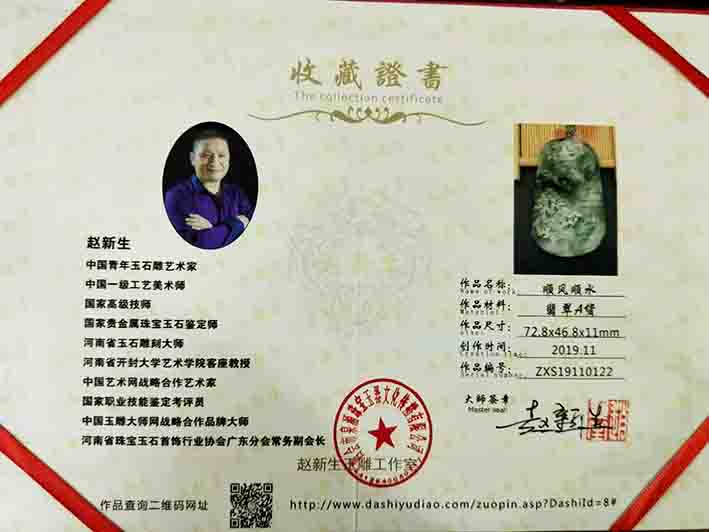 收藏證書
The collection certificate
赵新生
中国青年玉石雕艺术家
中国一级工艺美术师
国家高级技师
国家贵金属珠宝玉石鉴定师
河南省玉石雕刻大师
河南省开封大学艺术学院客座教授
中国艺术网战略合作艺术家
国家职业技能鉴定考评员
中国玉雕大师网战略合作品牌大师
河南省珠宝玉石首饰行业协会广东分会常务副会长
作品名称: 顺风顺水
Name of work:
作品材料: 翡翠A货
Material:
作品尺寸: 72.8x46.8x11mm
创作时间: 2019.11
Creation time:
作品编号: ZXS19110122
Serial number:
大师签章
Master seal:
赵新生
赵新生玉雕工作室
作品查询二维码网址
http://www.dashiyudiao.com/zuopin.asp?DashiId=8#